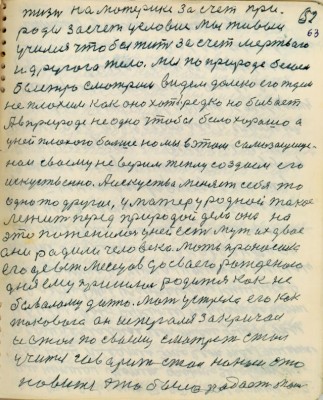 52
63
жизн на матери за счет при.
роды за счет условие мы живым
учимся чтобы жить за счет мертваго
и другога тело. Мы по природе
смотрим видем далеко его ждем
не плохим как оно хоть редко но бывает
А в природе не одно чтобы было хорошо а
у ней плохого больше но мы в этом самозащище-
нам своему не верим теплу создаем его
искуственно. А искуства меняет себя то
одно то другая, у матери родной такое
лежит перед природой дело она на
это поженилас у ней есть муж их двое
они радили человека. Мать проносила
его девять месяцов до сваего рождения
дня ему пришлос родится как не
бывалому дитю. Мать устрело его как
таковога он закричал
и стал по своему смотреть стал
учится гаварить стал
новым это было радость